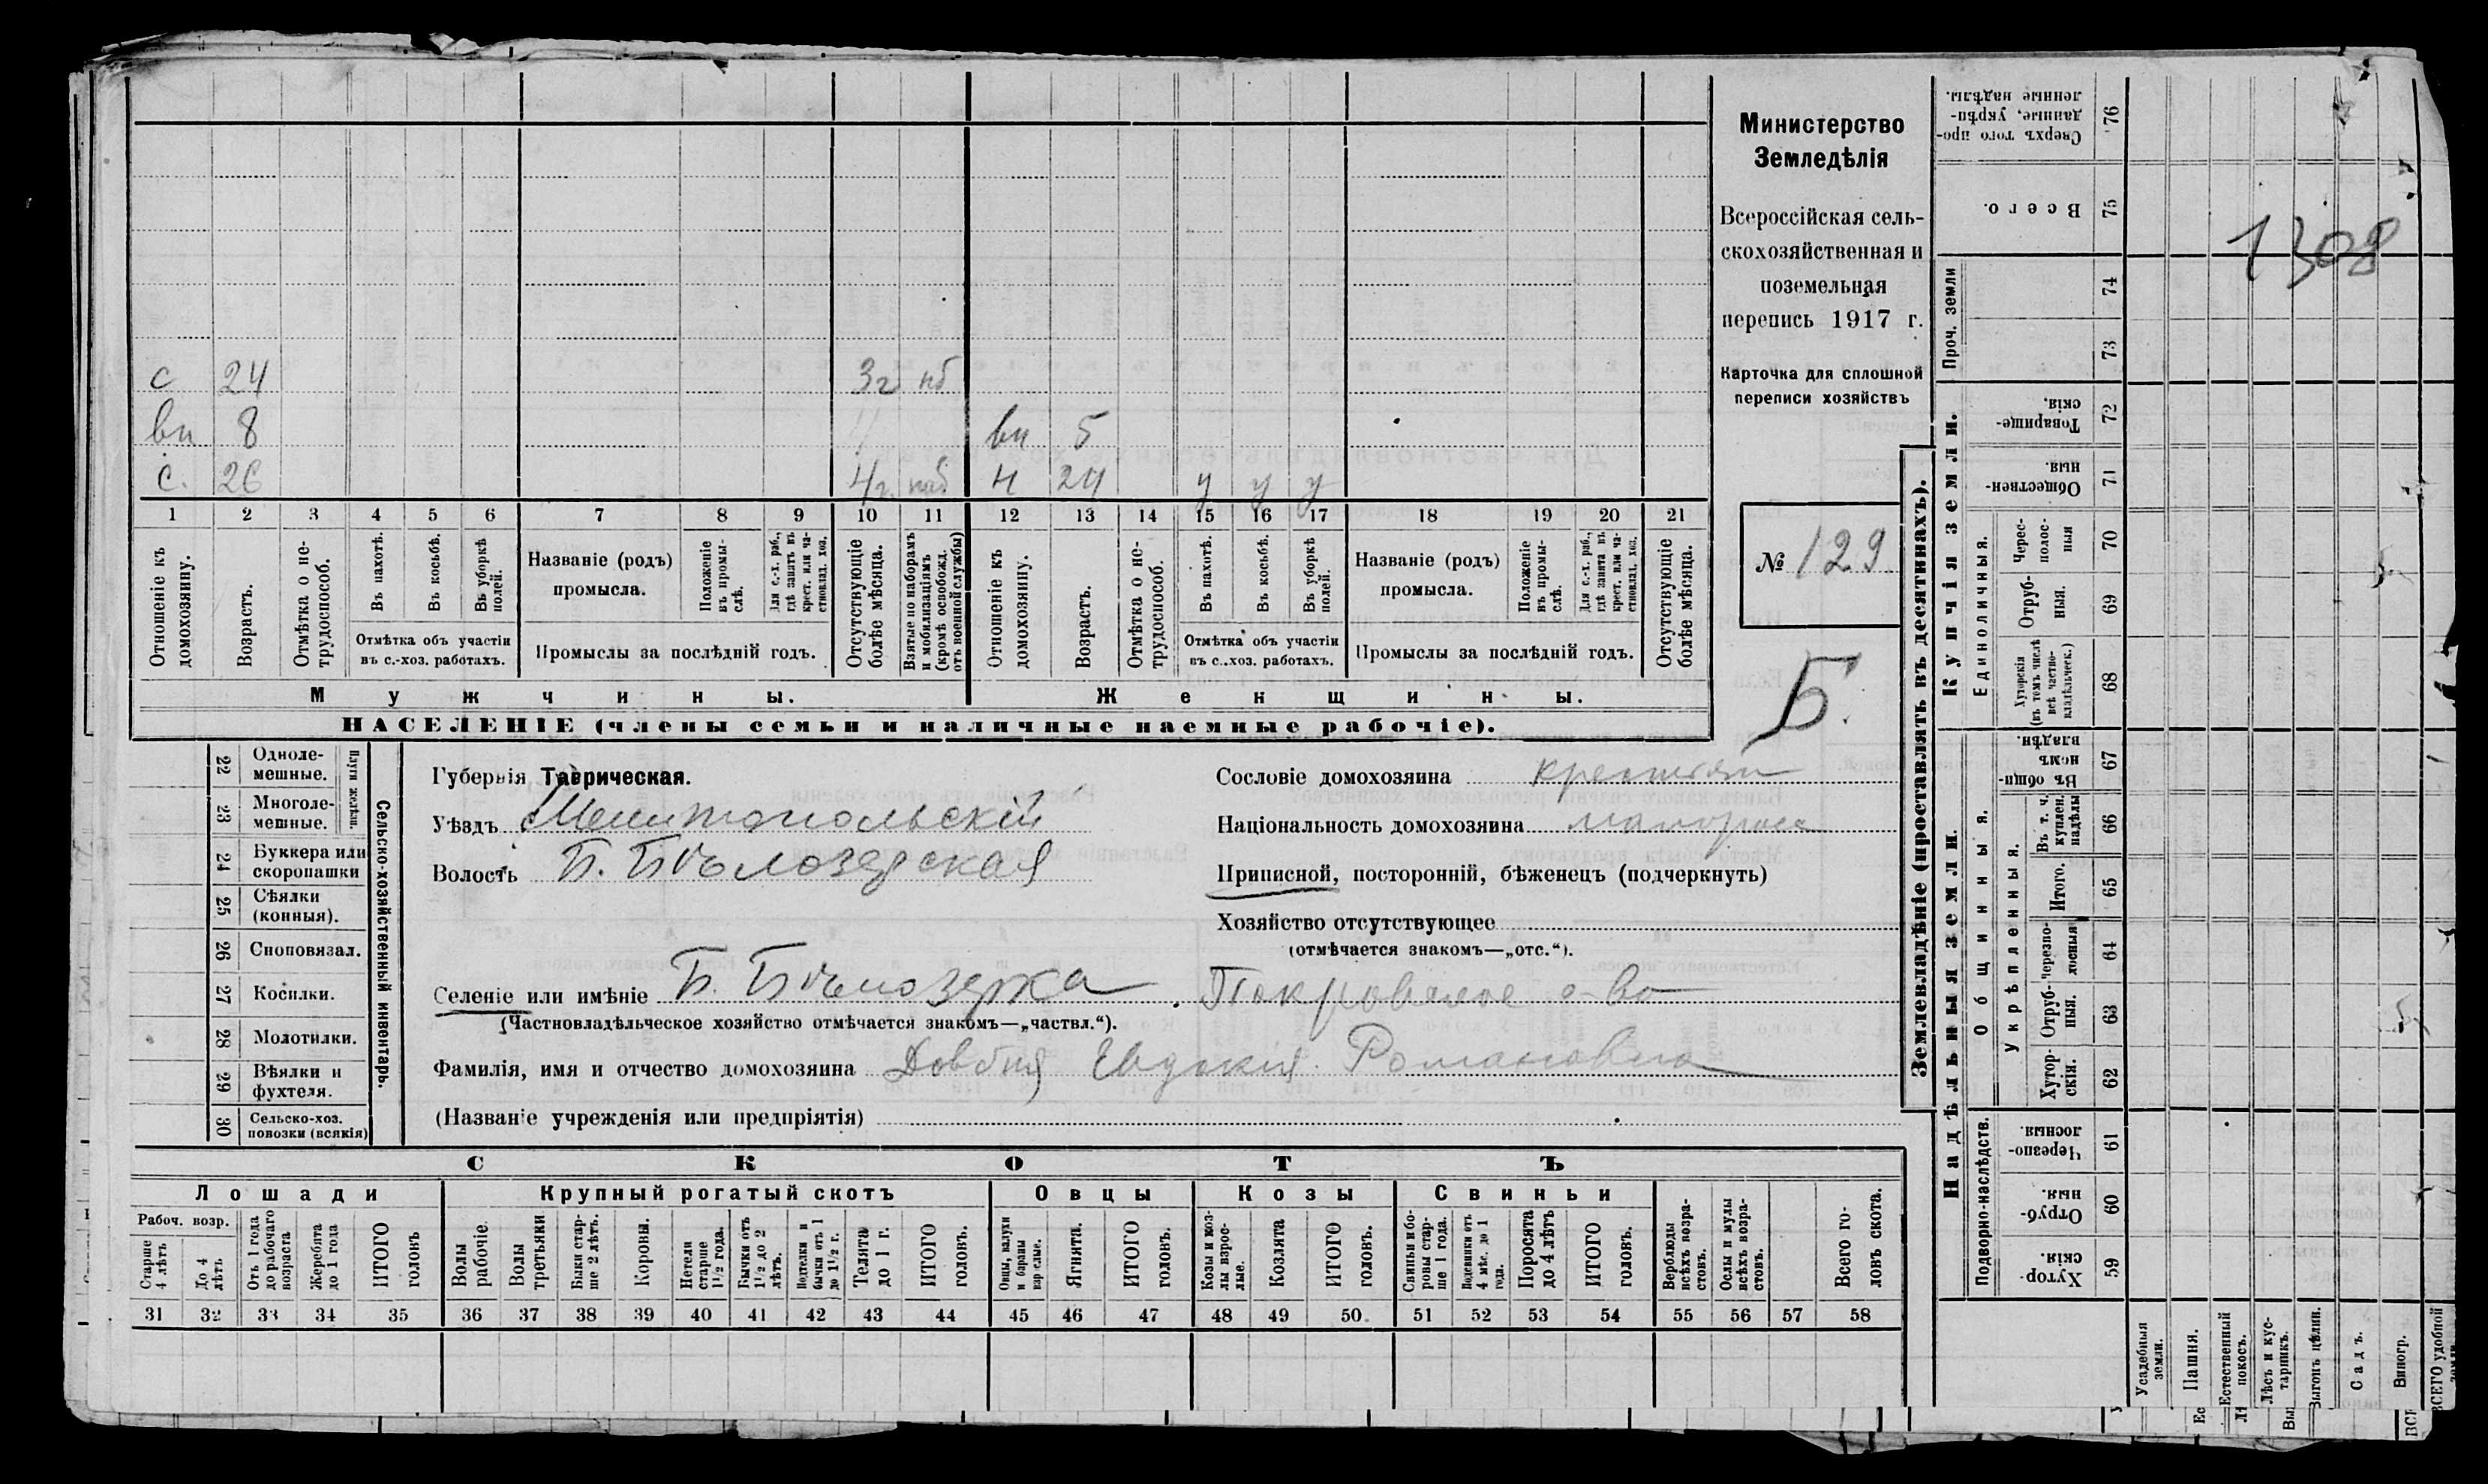 с 24 3г нб
вн 8 " вн 5
с. 26 4г. наб н 24 у у у
1 2 3 4 5 6 7 8 9 10 11 12 13 14 15 16 17 18 19 20 21
Отношеніе къ домохозяину.
Возрастъ.
Отмѣтка о не-трудоспособ.
Въ пахотѣ.
Въ косьбѣ.
Въ уборкѣ полей.
Отмѣтка объ участіи
въ с.-хоз. работахъ.
Названіе (родъ)
промысла.
Положеніе въ промы-слѣ.
Для с.-х. раб., гдѣ занятъ въ крест. или ча-стновлад. хоз.
Промыслы за послѣдній годъ.
Отсутствующіе болѣе мѣсяца.
Взятые по наборамъ и мобилизаціямъ (кромѣ освобожд. отъ военной службы)
Отношеніе къ домохозяину.
Возрастъ.
Отмѣтка о не-трудоспособ.
Въ пахотѣ.
Въ косьбѣ.
Въ уборкѣ полей.
Отмѣтка объ участіи
въ с.-хоз. работахъ.
Названіе (родъ)
промысла.
Положеніе въ промы-слѣ.
Для с.-х. раб., гдѣ занята въ крест. или ча-стновлад. хоз.
Промыслы за послѣдній годъ.
Отсутствующіе болѣе мѣсяца.
Мужчины.
Женщины.
НАСЕЛЕНІЕ (члены семьи и наличные наемные рабочіе).
Министерство
Земледѣлія
Всероссійская сель-
скохозяйственная и
поземельная
перепись 1917 г.
Карточка для сплошной
переписи хозяйствъ
№ 129
Б.
22 Одноле-мешные.
23 Многоле-мешные.
Плуги желѣзн.
24 Буккера или скоропашки
25 Сѣялки (конныя).
26 Сноповязал.
27 Косилки.
28 Молотилки.
29 Вѣялки и фухтеля.
30 Сельско-хоз. повозки (всякія)
Сельско-хозяйственный инвентарь.
Губернія Таврическая.
Уѣздъ Мелитопольскій
Волость Б. Бѣлозерская
Селеніе или имѣніе Б. Бѣлозерка. Покровское о-во
(Частновладѣльческое хозяйство отмѣчается знакомъ—„частвл.“).
Фамилія, имя и отчество домохозяина Довбня Евдокия Романовна
(Названіе учрежденія или предпріятія)
Сословіе домохозяина крестьян
Національность домохозяина малоросс
Приписной, посторонній, бѣженецъ (подчеркнуть)
Хозяйство отсутствующее
(отмѣчается знакомъ—„отс.“).
СКОТЪ
Лошади
Крупный рогатый скотъ
Овцы
Козы
Свиньи
Рабоч. возр.
Старше 4 лѣтъ
До 4 лѣтъ
Отъ 1 года до рабочаго возраста
Жеребята до 1 года
ИТОГО головъ
Волы рабочіе.
Волы третьяки
Быки стар-ше 2 лѣтъ.
Коровы.
Нетели старше 1½ года.
Бычки отъ 1½ до 2 лѣтъ.
Подтелки и бычки отъ 1 до 1½ г.
Телята до 1 г.
ИТОГО головъ.
Овцы, валухи и бараны взрослые.
Ягнята.
ИТОГО головъ.
Козы и коз-лы взрос-лые.
Козлята
ИТОГО головъ.
Свиньи и бо-ровы стар-ше 1 года.
Подсвинки отъ 4 мѣс. до 1 года.
Поросята до 4 лѣтъ
ИТОГО головъ.
Верблюды всѣхъ возра-стовъ.
Ослы и мулы всѣхъ возра-стовъ.
Всего го-ловъ скота.
31 32 33 34 35 36 37 38 39 40 41 42 43 44 45 46 47 48 49 50. 51 52 53 54 55 56 57 58
Землевладѣніе (проставлять въ десятинахъ).
Купчія земли.
Надѣльныя земли.
Сверхъ того про-данные, укрѣп-ленные надѣлы. 76
Всего. 75
Проч. земли 74 73
Товарище-скія. 72
Обществен-ныя. 71
Единоличныя.
Черес-полос-ныя 70
Отруб-ныя. 69
Хуторскія (въ томъ числѣ всѣ частно-владѣльческ.) 68
Общинныя.
Въ общи-номъ владѣн. 67
Укрѣпленныя.
Въ т. ч. куплен. надѣлы 66
Итого. 65
Черезпо-лосныя 64
Отруб-ныя. 63
Хутор-скія. 62
Подворно-наслѣдств.
Черезпо-лосныя. 61
Отруб-ныя. 60
Хутор-скія 59
1308
Усадебныя земли.
Пашня.
Естественный покосъ.
Лѣсъ и кус-тарникъ.
Выгонъ цѣлин.
Садъ.
Виногр.
ВСЕГО удобной земли